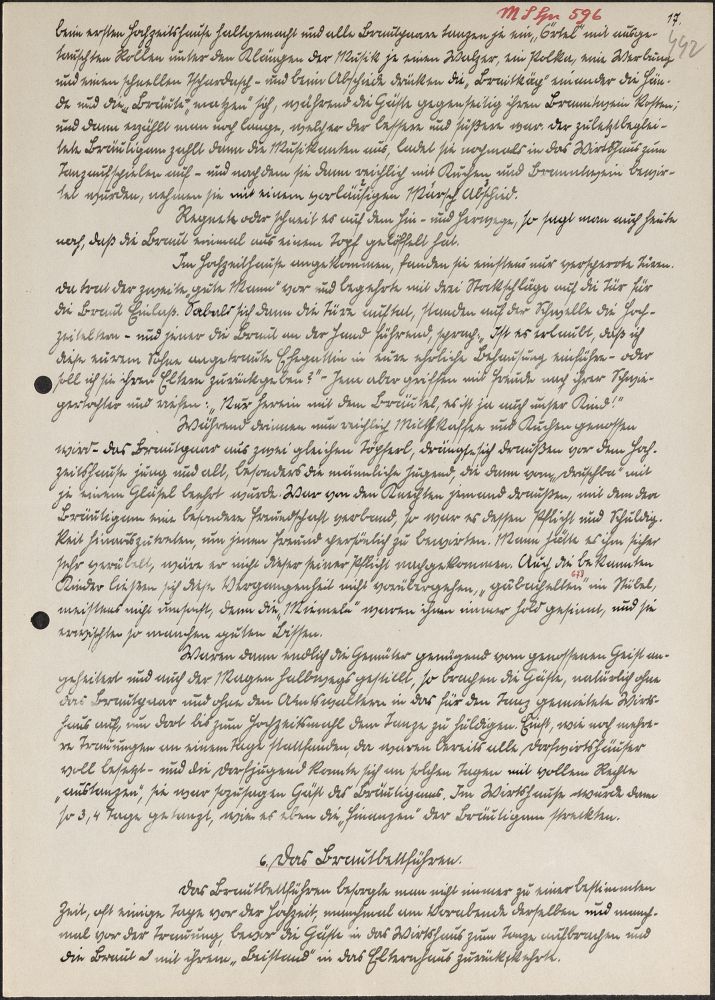 M S Gr 596
17.
442
beim ersten Hochzeitshause haltgemacht und alle Brautpaare tanzen je ein „Örtel" mit ausge-
tauschten Rollen unter den Klängen der Musik je einen Walzer, ein Polka, eine Werbung
und einen schnellen Tschardasch - und beim Abschiede drücken die „Braitkäch" einander die Hän-
de und die „Bräute" sich, während die Gäste gegenseitig ihren Branntwein kosten;
und dann erzählt man noch lange, welcher der bessere und süßere war. Der zuletztbeglei-
tete Bräutigam zahlt dann die Musikanten aus, ladet sie nochmals in das Wirtshaus zum
Tanzaufspielen auf - und nachdem sie dann reichlich mit Kuchen und Branntwein bewir-
tet wurden, nehmen sie mit einem vorläufigen Marsch Abschied.
Regnete oder schneit es auf dem Hin- und Herwege, so sagt man auch heute
noch, daß die Braut einmal aus einem Topf gelöffelt hat.
Im Hochzeithause angekommen, fanden sie einstens nur versperrte Türen.
Da trat der zweite „gute Mann" vor und begehrte mit drei Stockschläge auf die Tür für
die Braut Einlaß. Sobald sich dann die Türe auftat, standen auf der Schwelle die Hoch-
zeiteltern - und jener die Braut an der Hand führend, sprach: „Ist es erlaubt, daß ich
diese eurem Sohne angetraute Ehegattin in eure ehrliche Behausung einführe - oder
soll ich sie ihren Eltern zurückgeben?" - Jene aber griffen mit Freude nach ihrer Schwie-
gertochter und riefen: „Nur herein mit dem Bräutel, es ist ja auch unser Kind!"
Während drinnen nun reichlich Milchkaffee und Kuchen genossen
wird - das Brautpaar aus zwei gleichen Töpferl, drängte sich draußen vor dem Hoch-
zeitshause jung und alt, besonders die männliche Jugend, die dann vom „Druschba" mit
je einem Gläsel beehrt wurde. War von den Knechten jemand draußen, mit dem den
Bräutigam eine besondere Freundschaft verband, so war es dessen Pflicht und Schuldig-
keit hinauszutreten, um jenen Freund persönlich zu bewirten. Man hätte es ihm sicher
sehr verübelt, wäre er nicht dieser seiner Pflicht nachgekommen. Auch die bekannten
Kinder ließen sich diese Vergangenheit nicht vorübergehen, im Stübel,
meistens nicht umsonst, denn die „Miemela" waren ihnen immer hold gesinnt, und sie
erwischten so manchen guten Bissen.
Waren dann endlich die Gemüter genügend vom genossenen Geist an-
geheitert und auch der Magen halbwegs gestillt, so brachen die Gäste, natürlich ohne
das Brautpaar und ohne den Amtswaltern in das für den Tanz gemietete Wirts-
haus auf, um dort bis zum Hochzeitsmahl dem Tanze zu huldigen. Einst, wie noch mehre-
re Trauungen an einem Tage stattfanden, da waren bereits alle Dorfwirtshäuser
voll besetzt - und die Dorfjugend konnte sich an solchen Tagen mit vollem Rechte
„austanzen", sie war sozusagen Gäst des Bräutigams. Im Wirtshause wurde dann
so 3, 4 Tage getanzt, wie es eben die „Finanzen" der Bräutigam streckten.
6. Das Brautbettführen.
Das Brautbettführen besorgte man nicht immer zu einer bestimmten
Zeit, oft einige Tage vor der Hochzeit, manchmal am Vorabende derselben und manch-
mal vor der Trauung, bevor die Gäste in das Wirtshaus zum Tanze aufbrachen und
die Braut mit ihrem „Beistand" in das Elternhaus zurückkehrte.